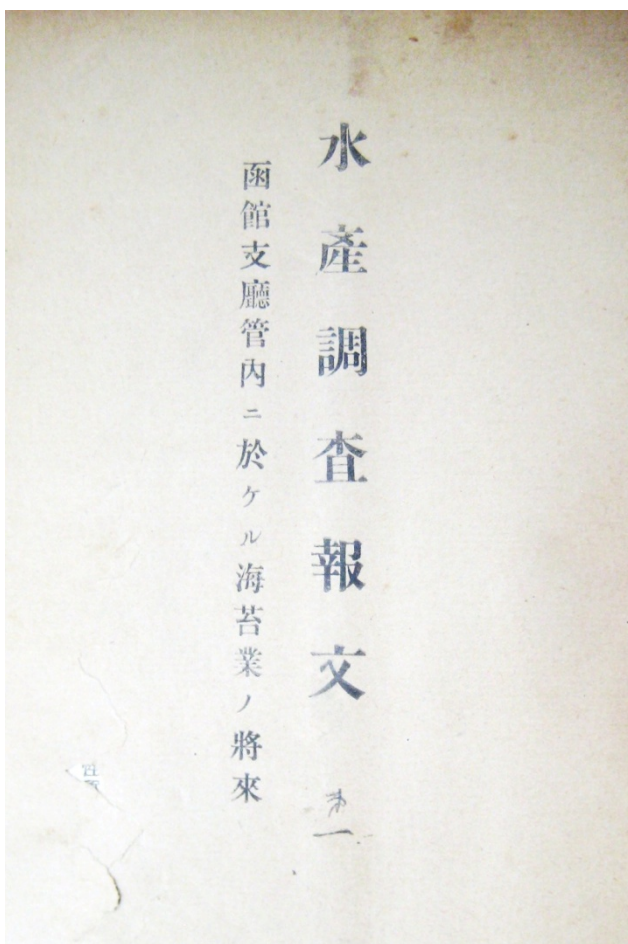 水產調査報文 第一
函館支廳管內ニ於ケル海苔業ノ將來